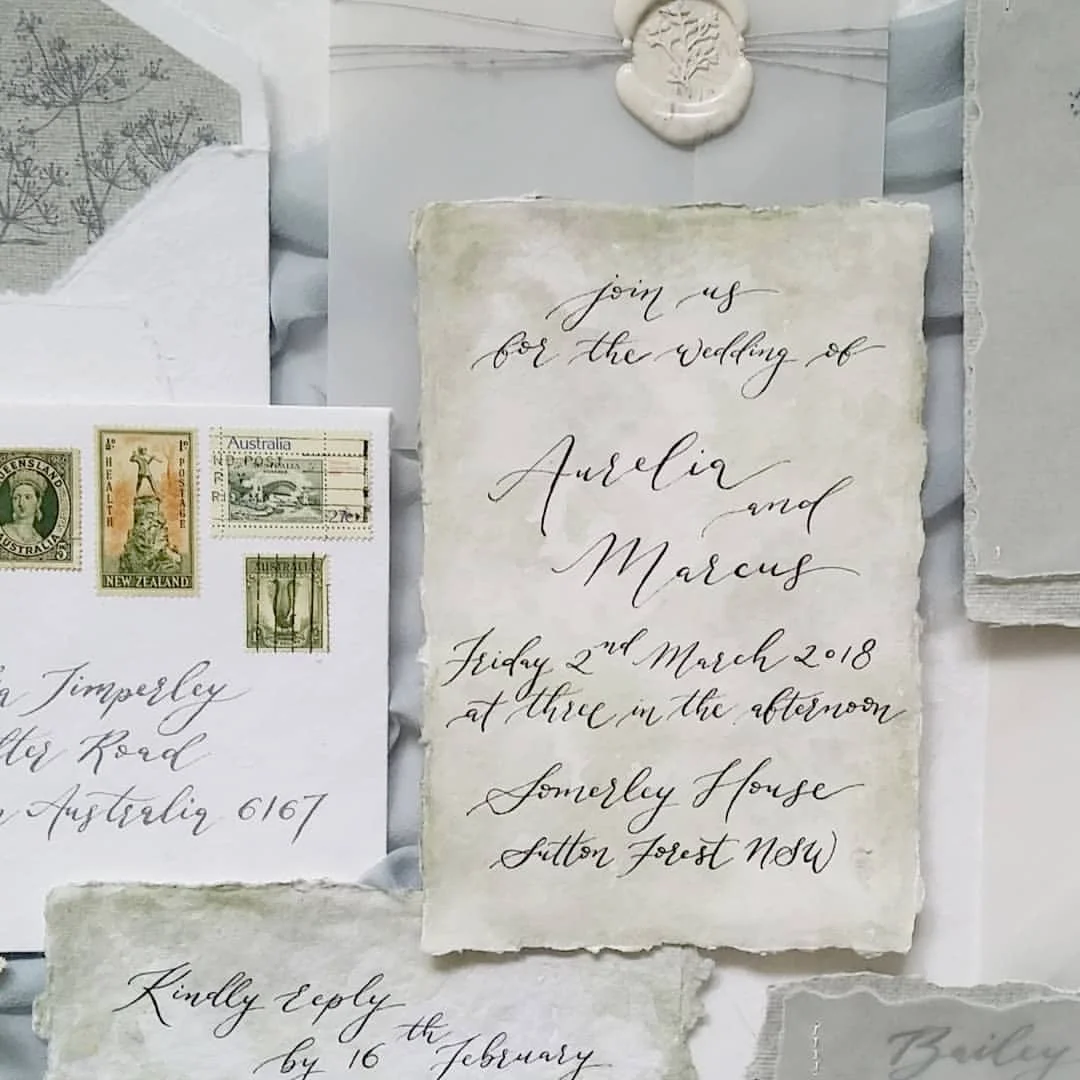 join us
for the wedding of
Aurelia
and
Marcus
Friday 2nd March 2018
at three in the afternoon
Somerley House
Sutton Forest NSW
QUEENSLAND
AUSTRALIA
HEALTH
1D POSTAGE
NEW ZEALAND
Australia
27c
AUSTRALIA
Timperley
Road
Australia 6167
Kindly reply
by 16th February
Bailey